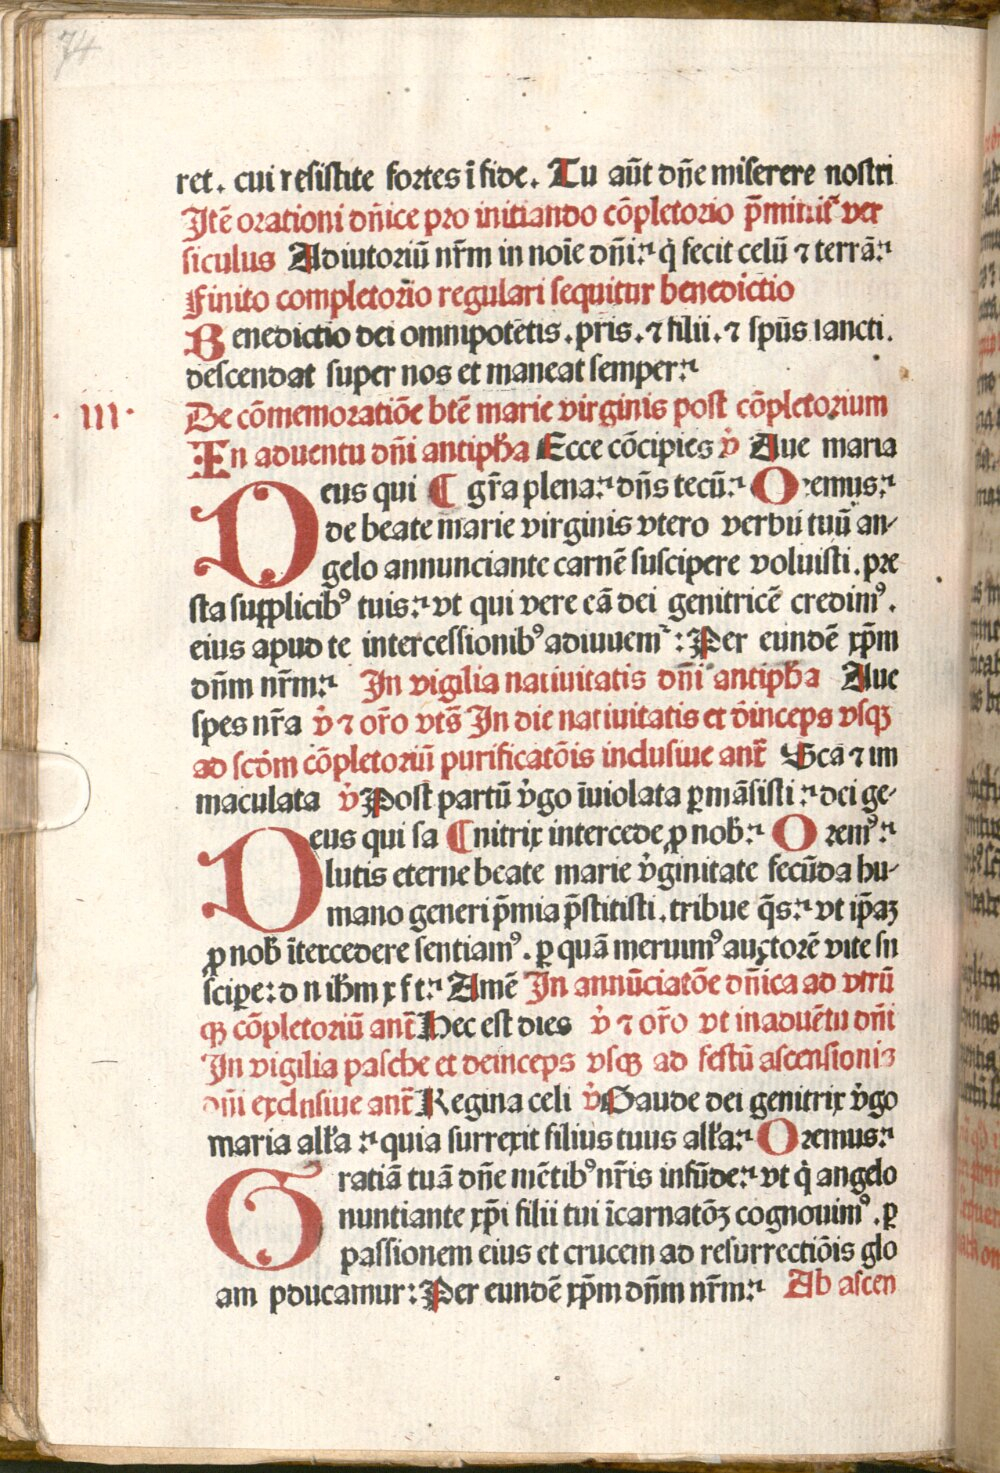 74
ret. cui resistite fortes ī fide. Tu aūt dn̄e miserere nostri
Itē orationi dn̄ice pro initiando cōpletorio p̄mittit̄ ver
siculus Adiutoriū nr̄m in noīe dn̄i:⁊ q̇ fecit celū ⁊ terrā:⁊
Finito completorio regulari sequitur benedictio
Benedictio dei omnipotētis. pris. ⁊ filii. ⁊ spūs sancti.
descendat super nos et maneat semper:⁊
· III · De cōmemoratiōe btē marie virginis post cōpletorium
In aduentu dn̄i antipha Ecce cōcipies v̇ Aue maria
Deus qui ¶ gr̄a plena:⁊ dn̄s tecū:⁊ Oremus:⁊
de beate marie virginis vtero verbū tuū an-
gelo annunciante carnē suscipere voluisti. pre
sta supplicibꝰ tuis:⁊ vt qui vere eā dei genitricē credimꝰ.
eius apud te intercessionibꝰ adiuuem̄: Per eundē xp̄m
dn̄m nr̄m:⁊ In vigilia natiuitatis dn̄i antipha Aue
spes nr̄a v̇ ⁊ or̄o vts̄ In die natiuitatis et dīnceps vsqꝫ
ad scōm cōpletoriū purificatōis inclusiue ant̄ Sca ⁊ im
maculata v̇ Post partū v̇go īuiolata ꝑmāsisti:⁊ dei ge-
Deus qui sa ¶ nitrix intercede ꝓ nob̄:⁊ Oremꝰ:⁊
lutis eterne beate marie v̇ginitate fecūda hu-
mano generi p̄mia p̄stitisti. tribue q̄s:⁊ vt ip̄aꝫ
ꝓ nob̄ ītercedere sentiamꝰ. ꝑ quā meruimꝰ auxtorē vite su
scipere: d n ihm x f t:⁊ Amē In annūciatōe dn̄ica ad vtrū
qꝫ cōpletoriū ant̄ Hec est dies v̇ ⁊ or̄o vt in aduētu dn̄i
In vigilia pasche et deinceps vsqꝫ ad festū ascensionis
dn̄i exclusiue ant̄ Regina celi v̇ Gaude dei genitrix v̇go
maria all̄a:⁊ quia surrexit filius tuus all̄a:⁊ Oremus:⁊
Gratiā tuā dn̄e mētibꝰ nr̄is infūde:⁊ vt q̇ angelo
nuntiante xp̄i filii tui īcarnatōꝫ cognouimꝰ. ꝑ
passionem eius et crucem ad resurrectiōis glo
am ꝓducamur: Per eundē xp̄m dn̄m nr̄m:⁊ Ab ascen